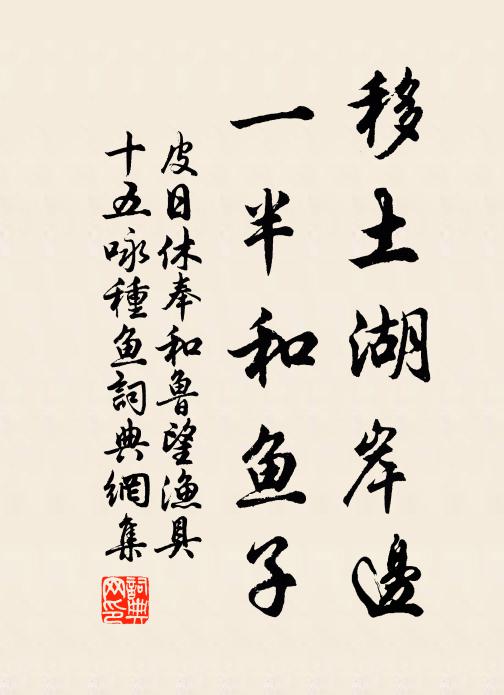 移土湖岸邊
一半和鱼子
皮日休奉和魯望漁具
十五咏種鱼詞典網集
詞典网印